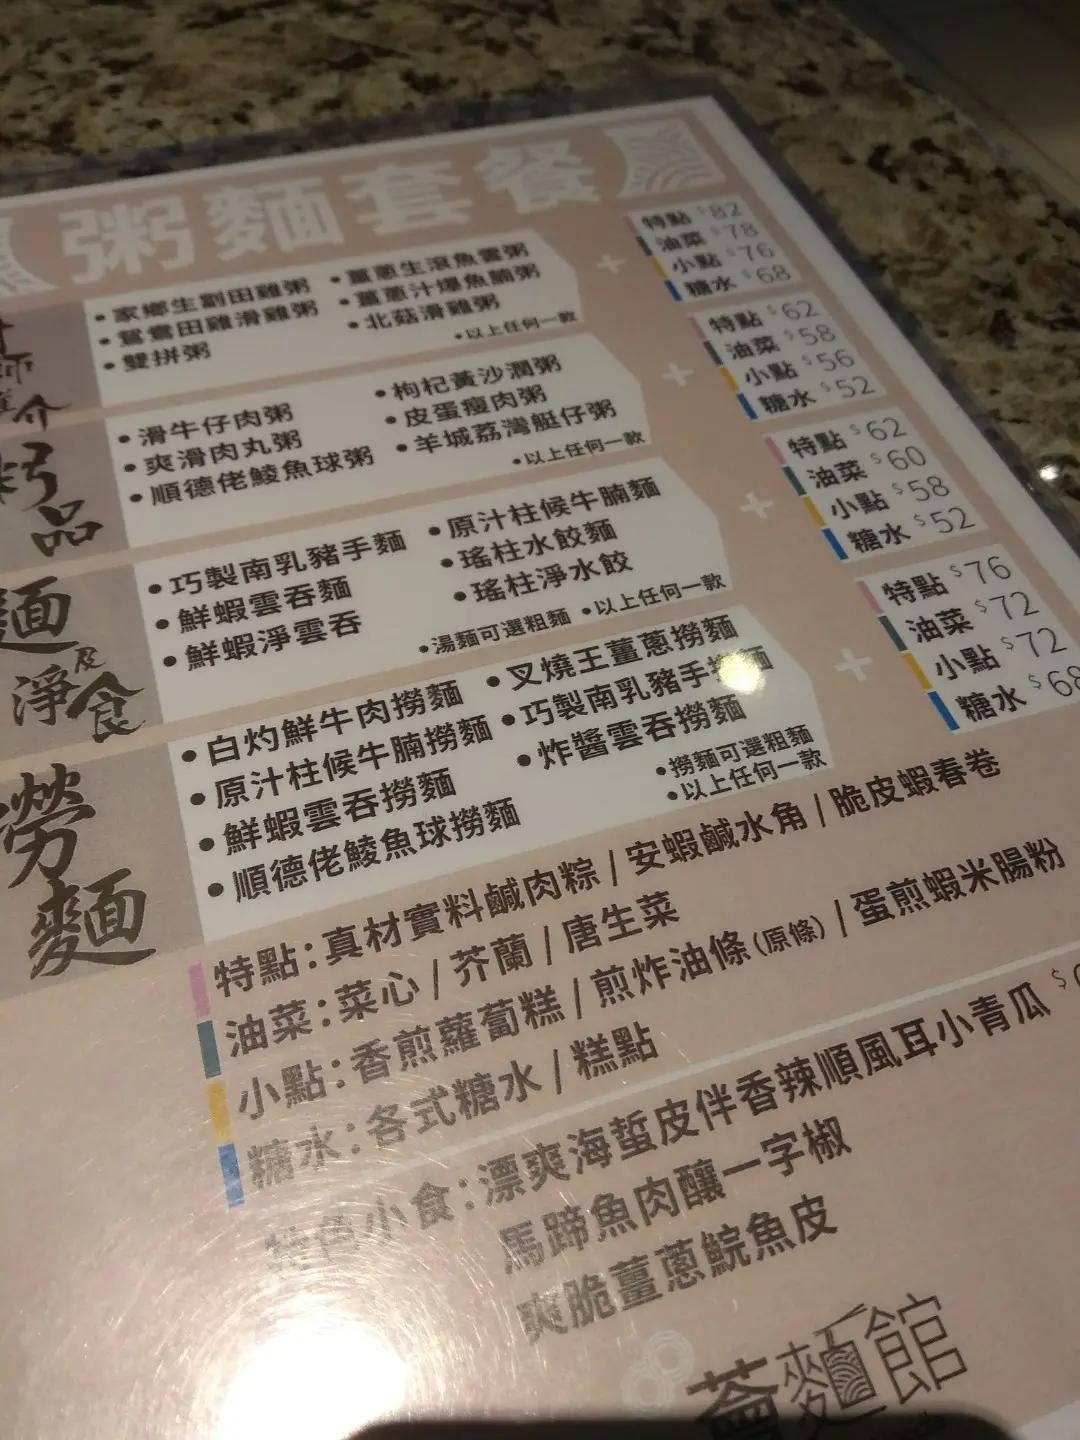 粥麵套餐
師
介
• 家鄉生劏田雞粥
• 鴛鴦田雞滑雞粥
• 雙拼粥
• 薑蔥生滾魚雲粥
• 薑蔥汁爆魚腩粥
• 北菇滑雞粥
• 以上任何一款
+
特點 $82
油菜 $78
小點 $76
糖水 $68
品
• 滑牛仔肉粥
• 爽滑肉丸粥
• 順德佬鯪魚球粥
• 枸杞黃沙潤粥
• 皮蛋瘦肉粥
• 羊城荔灣艇仔粥
• 以上任何一款
+
特點 $62
油菜 $58
小點 $56
糖水 $52
麵
及
淨食
• 巧製南乳豬手麵
• 鮮蝦雲吞麵
• 鮮蝦淨雲吞
• 原汁柱候牛腩麵
• 瑤柱水餃麵
• 瑤柱淨水餃
• 湯麵可選粗麵 • 以上任何一款
+
特點 $62
油菜 $60
小點 $58
糖水 $52
撈麵
• 白灼鮮牛肉撈麵
• 原汁柱候牛腩撈麵
• 鮮蝦雲吞撈麵
• 順德佬鯪魚球撈麵
• 叉燒王薑蔥撈麵
• 巧製南乳豬手撈麵
• 炸醬雲吞撈麵
• 撈麵可選粗麵
• 以上任何一款
+
特點 $76
油菜 $72
小點 $72
糖水 $68
特點:真材實料鹹肉粽 / 安蝦鹹水角 / 脆皮蝦春卷
油菜:菜心 / 芥蘭 / 唐生菜
小點:香煎蘿蔔糕 / 煎炸油條(原條) / 蛋煎蝦米腸粉
糖水:各式糖水 / 糕點
特色小食:漂爽海蜇皮伴香辣順風耳小青瓜 $
馬蹄魚肉釀一字椒
爽脆薑蔥鯇魚皮
薈麵館